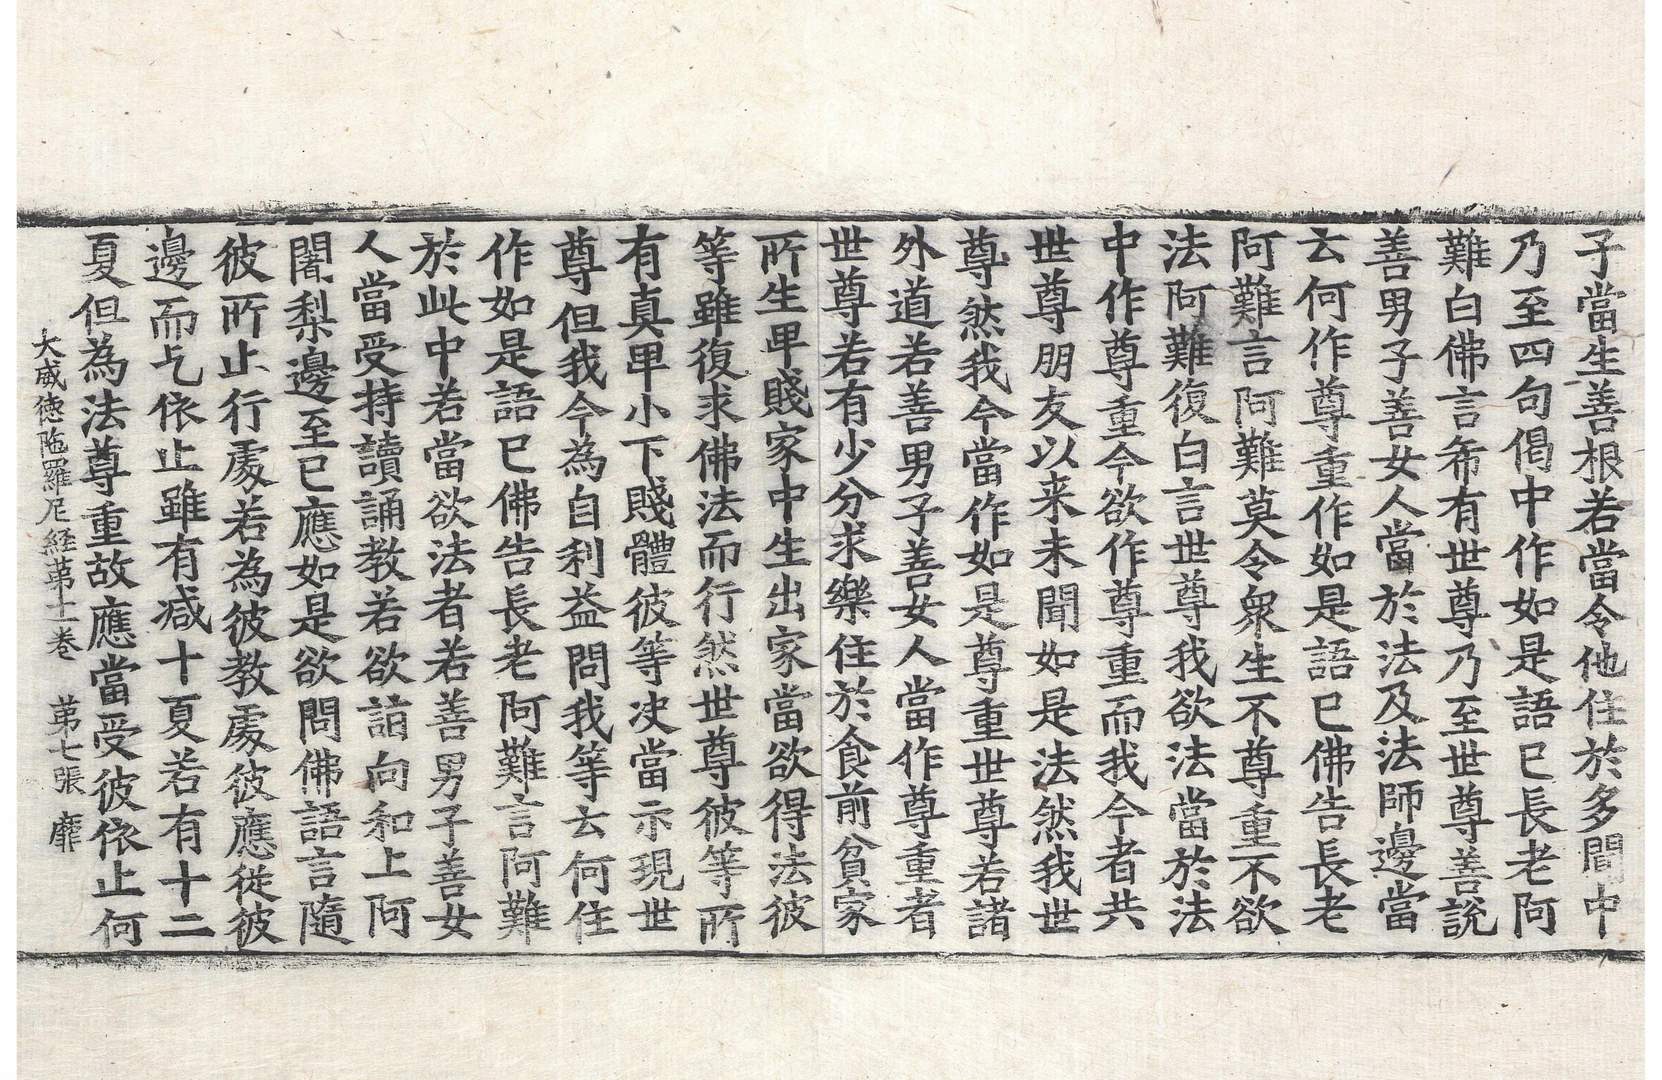 子當生善根若當令他住於多聞中
乃至四句偈中作如是語已長老阿
難白佛言希有世尊乃至世尊善說
善男子善女人當於法及法師邊當
云何作尊重作如是語已佛告長老
阿難言阿難莫令衆生不尊重不欲
法阿難復白言世尊我欲法當於法
中作尊重今欲作尊重而我今者共
世尊朋友以来未聞如是法然我世
尊然我今當作如是尊重世尊若諸
外道若善男子善女人當作尊重者
世尊若有少分求樂住於食前貧家
所生卑賤家中生出家當欲得法彼
等雖復求佛法而行然世尊彼等所
有真卑小下賤體彼等决當示現世
尊但我今為自利益問我等云何住
作如是語已佛告長老阿難言阿難
於此中若當欲法者若善男子善女
人當受持讀誦教若欲詣向和上阿
闍梨邊至已應如是欲問佛語言隨
彼所止行處若為彼教處彼應從彼
邊而乞依止雖有减十夏若有十二
夏但為法尊重故應當受彼依止何
大威徳陁羅尼経苐十一巻 苐七張 靡